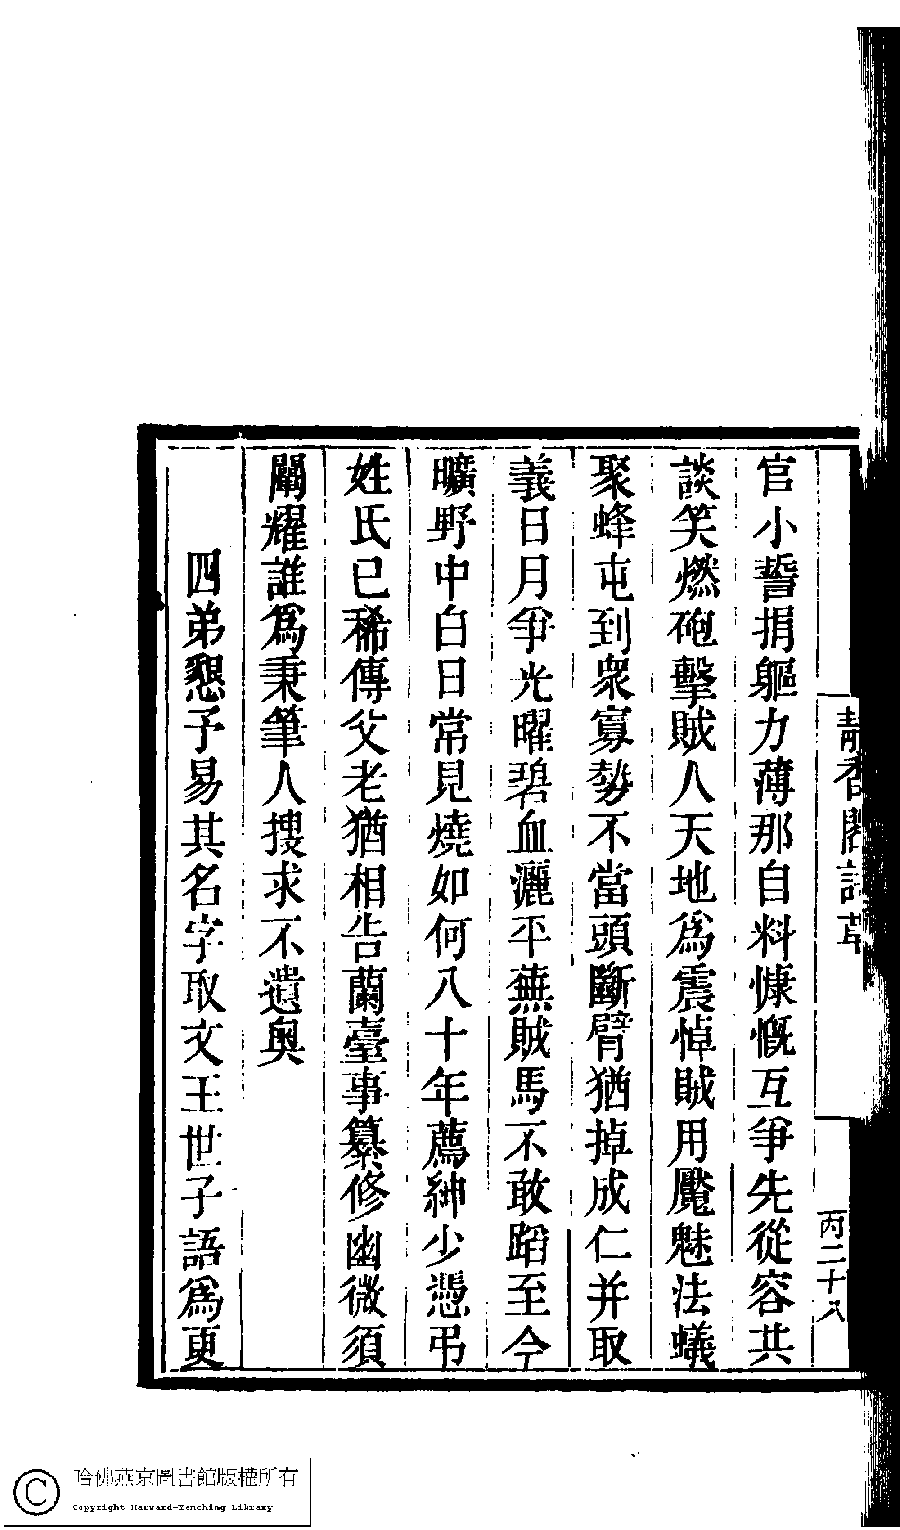 靜香閣詩草
丙二十八
官小誓捐軀力薄那自料慷慨互爭先從容共
談笑燃砲擊賊人天地爲震悼賊用魘魅法蟻
聚蜂屯到衆寡勢不當頭斷臂猶掉成仁并取
義日月爭光曜碧血灑平蕪賊馬不敢蹈至今
曠野中白日常見燒如何八十年薦紳少憑弔
姓氏已稀傳父老猶相告蘭臺事纂修幽微須
闡耀誰爲秉筆人搜求不遺奧
四弟懇予易其名字取文王世子語爲更
哈佛燕京圖書館版權所有
Copyright Harvard-Yenching Library